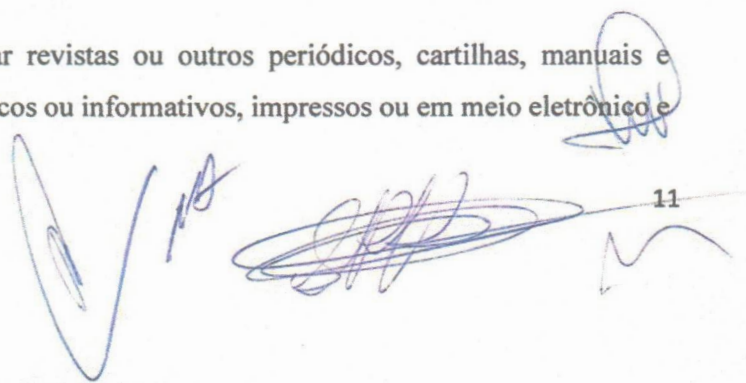 ar revistas ou outros periódicos, cartilhas, manuais e
cos ou informativos, impressos ou em meio eletrônico e
11